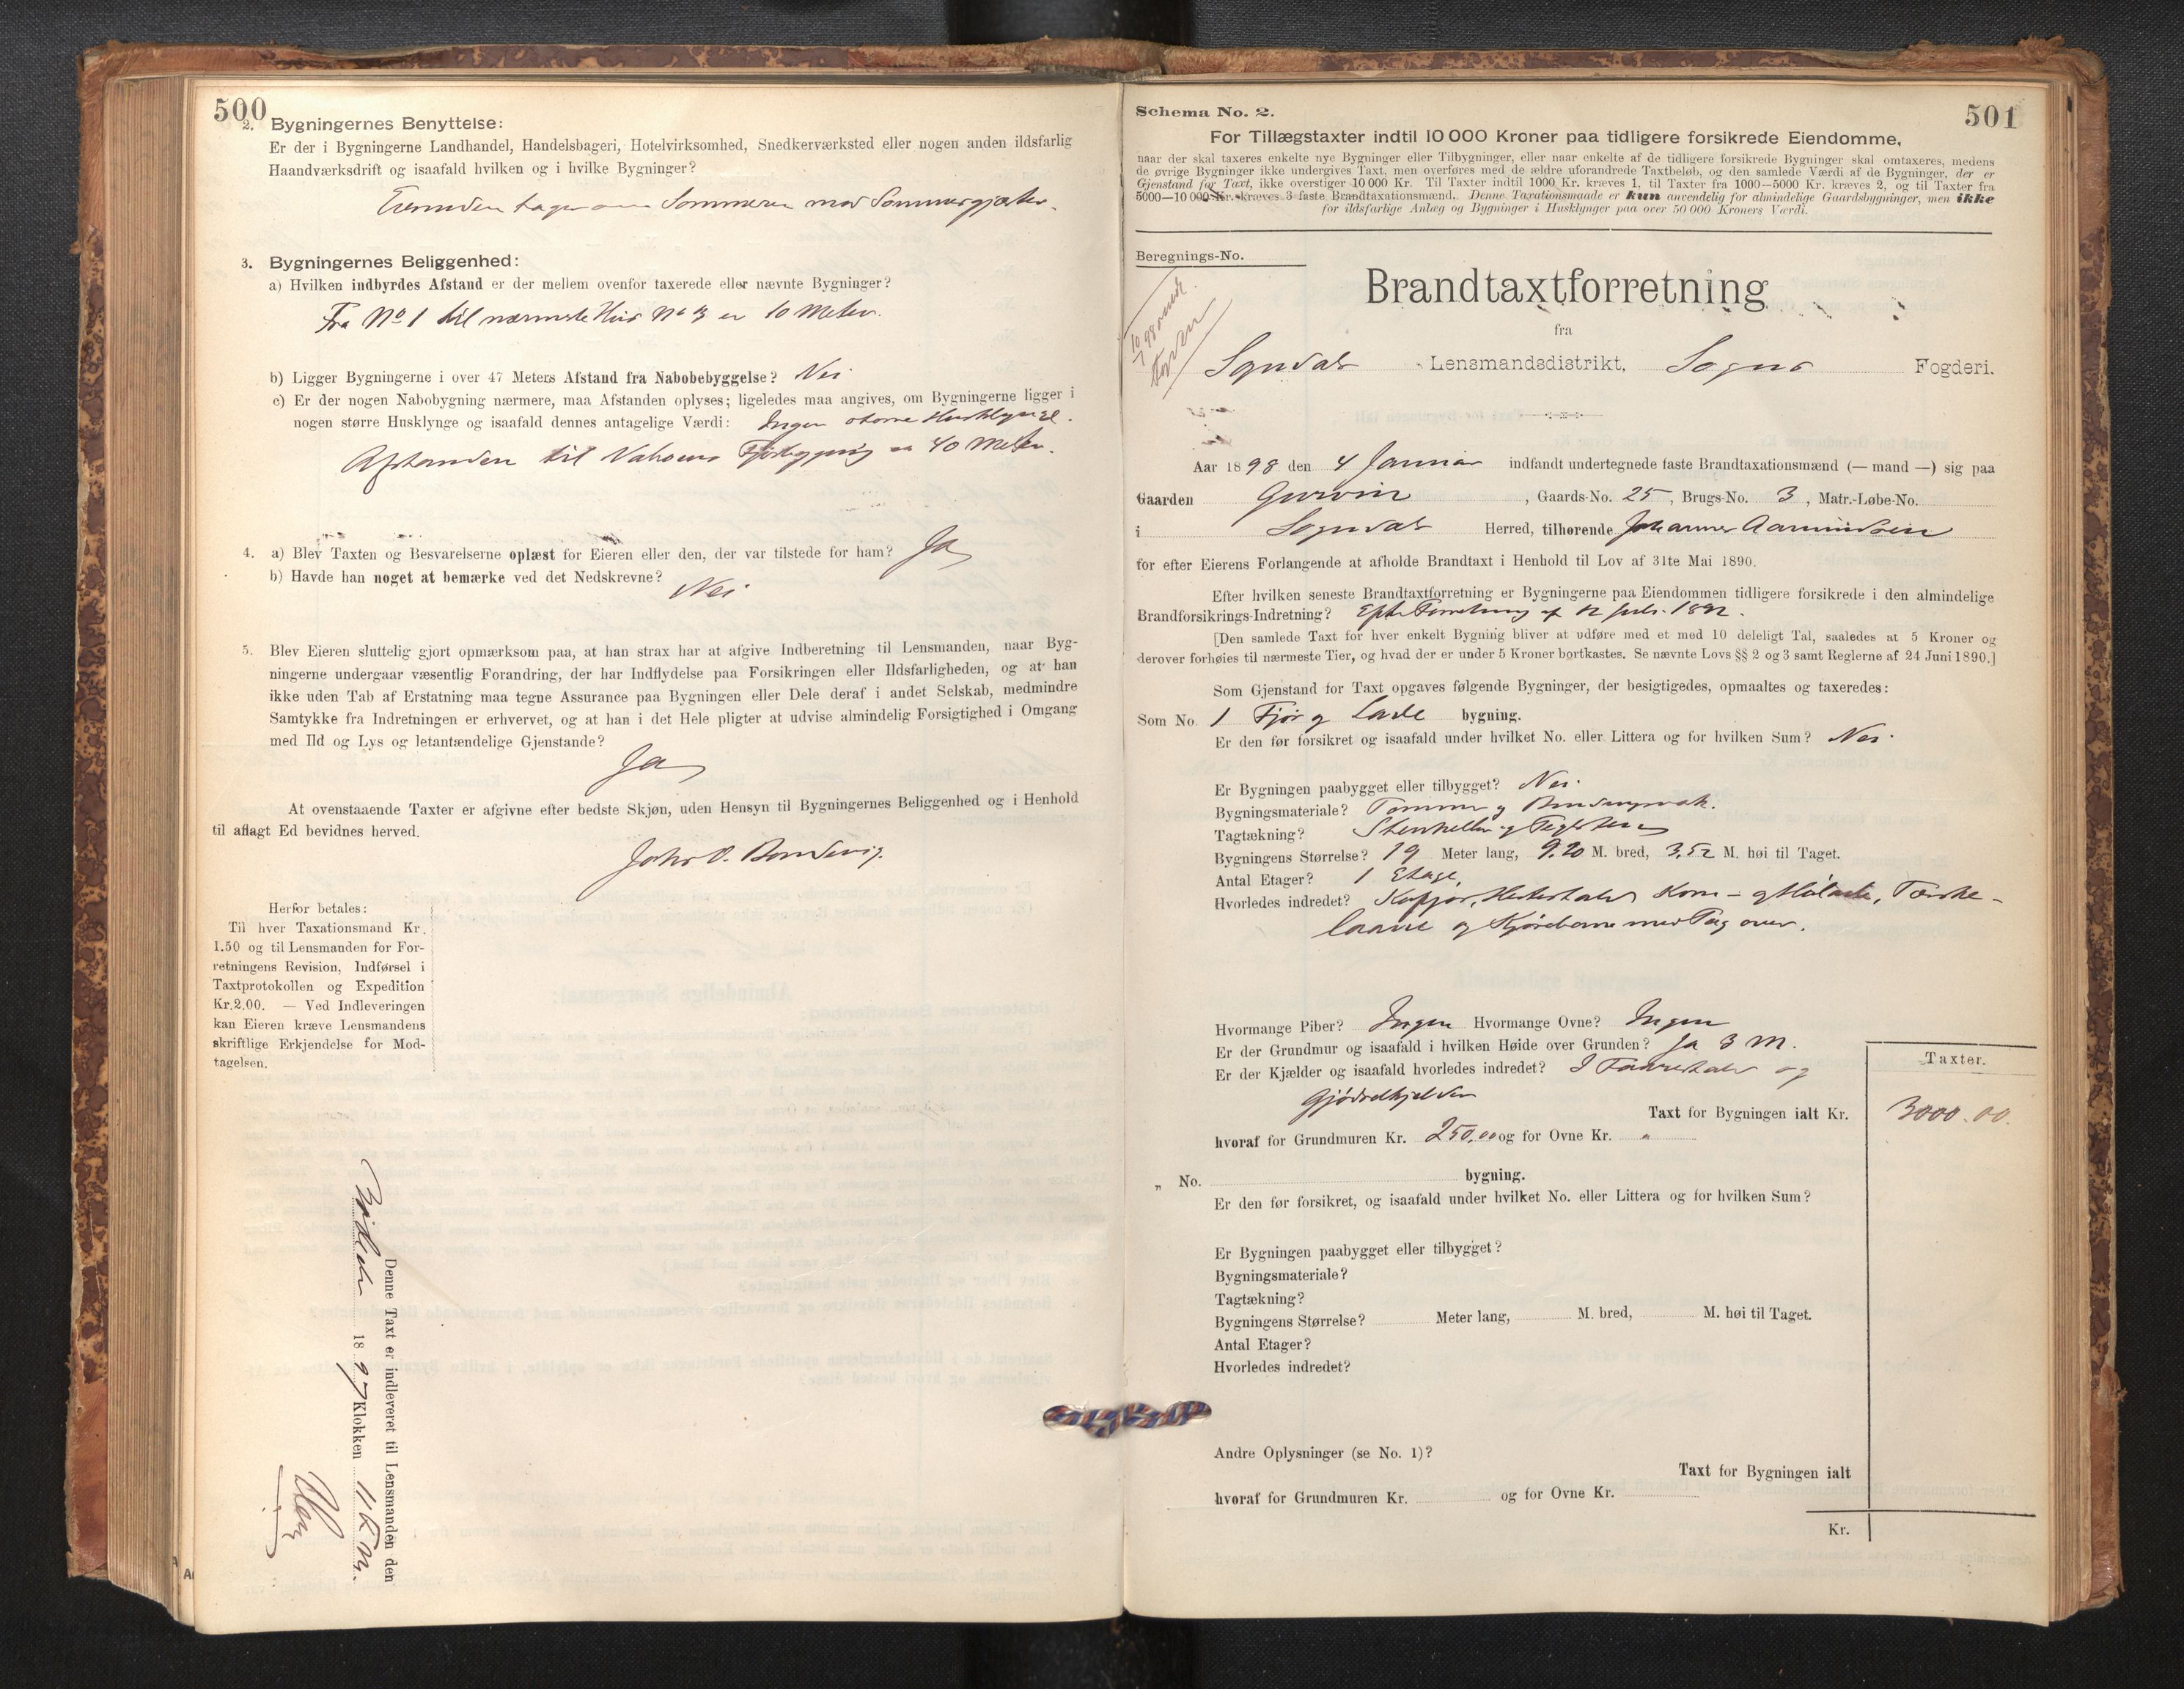 500
2. Bygningernes Benyttelse:
Er der i Bygningerne Landhandel, Handelsbageri, Hotelvirksomhed, Snedkerværksted eller nogen anden ildsfarlig
Haandværksdrift og isaafald hvilken og i hvilke Bygninger?
om Sommeren mod Sommergjæster.
3. Bygningernes Beliggenhed:
a) Hvilken indbyrdes Afstand er der mellem ovenfor taxerede eller nævnte Bygninger?
Fra No 1 til nærmeste Hus No 3 er 10 Meter.
b) Ligger Bygningerne i over 47 Meters Afstand fra Nabobebyggelse? Nei
c) Er der nogen Nabobygning nærmere, maa Afstanden oplyses; ligeledes maa angives, om Bygningerne ligger i
nogen større Husklynge og isaafald dennes antagelige Værdi: Ingen større Husklynge.
Afstanden til Naboens er 40 Meter.
4. a) Blev Taxten og Besvarelserne oplæst for Eieren eller den, der var tilstede for ham? Ja
b) Havde han noget at bemærke ved det Nedskrevne?
Nei
5. Blev Eieren sluttelig gjort opmærksom paa, at han strax har at afgive Indberetning til Lensmanden, naar Byg-
ningerne undergaar væsentlig Forandring, der har Indflydelse paa Forsikringen eller Ildsfarligheden, og at han
ikke uden Tab af Erstatning maa tegne Assurance paa Bygningen eller Dele deraf i andet Selskab, medmindre
Samtykke fra Indretningen er erhvervet, og at han i det Hele pligter at udvise almindelig Forsigtighed i Omgang
med Ild og Lys og letantændelige Gjenstande?
Ja
At ovenstaaende Taxter er afgivne efter bedste Skjøn, uden Hensyn til Bygningernes Beliggenhed og i Henhold
til aflagt Ed bevidnes herved.
Herfor betales:
Til hver Taxationsmand Kr.
1.50 og til Lensmanden for For-
retningens Revision, Indførsel i
Taxtprotokollen og Expedition
Kr. 2.00. — Ved Indleveringen
kan Eieren kræve Lensmandens
skriftlige Erkjendelse for Mod-
tagelsen.
Denne Taxt er indleveret til Lensmanden den
1897 Klokken
501
Schema No. 2.
For Tillægstaxter indtil 10 000 Kroner paa tidligere forsikrede Eiendomme,
naar der skal taxeres enkelte nye Bygninger eller Tilbygninger, eller naar enkelte af de tidligere forsikrede Bygninger skal omtaxeres, medens
de øvrige Bygninger ikke undergives Taxt, men overføres med de ældre uforandrede Taxtbeløb, og den samlede Værdi af de Bygninger, der er
Gjenstand for Taxt, ikke overstiger 10 000 Kr. Til Taxter indtil 1000 Kr. kræves 1, til Taxter fra 1000—5000 Kr. kræves 2, og til Taxter fra
5000—10 000 Kr. kræves 3 faste Brandtaxationsmænd. Denne Taxationsmaade er kun anvendelig for almindelige Gaardsbygninger, men ikke
for ildsfarlige Anlæg og Bygninger i Husklynger paa over 50 000 Kroners Værdi.
Beregnings-No.
Brandtaxtforretning
fra
Sogndals Lensmandsdistrikt, Sogns Fogderi.
Aar 1898 den 4 Januar indfandt undertegnede faste Brandtaxationsmænd (— mand —) sig paa
Gaarden Gurvin, Gaards-No. 25, Brugs-No. 3, Matr.-Løbe-No.
i Sogndals Herred, tilhørende Johannes Aamundsen
for efter Eierens Forlangende at afholde Brandtaxt i Henhold til Lov af 31te Mai 1890.
Efter hvilken seneste Brandtaxtforretning er Bygningerne paa Eiendommen tidligere forsikrede i den almindelige
Brandforsikrings-Indretning? Efter Forretning af 12 1892.
[Den samlede Taxt for hver enkelt Bygning bliver at udføre med et med 10 deleligt Tal, saaledes at 5 Kroner og
derover forhøies til nærmeste Tier, og hvad der er under 5 Kroner bortkastes. Se nævnte Lovs §§ 2 og 3 samt Reglerne af 24 Juni 1890.]
Som Gjenstand for Taxt opgaves følgende Bygninger, der besigtigedes, opmaaltes og taxeredes:
Som No. 1 Fjøs og Lade bygning.
Er den før forsikret og isaafald under hvilket No. eller Littera og for hvilken Sum? Nei.
Er Bygningen paabygget eller tilbygget? Nei
Bygningsmateriale? Tømmer og Bindingsværk.
Tagtækning? Stenheller og Teglsten
Bygningens Størrelse? 19 Meter lang, 9.20 M. bred, 3.52 M. høi til Taget.
Antal Etager? 1 Etage.
Hvorledes indredet? Kofjøs, Hestestald Korn- og Hølade, Tærske-
laave og Kjørebro med Tag over.
Hvormange Piber? Ingen Hvormange Ovne? Ingen
Er der Grundmur og isaafald i hvilken Høide over Grunden? Ja 3 M.
Er der Kjælder og isaafald hvorledes indredet? I Faarestald og
Gjødselkjelder
Taxter.
Taxt for Bygningen ialt Kr. 3000.00.
hvoraf for Grundmuren Kr. 250.00 og for Ovne Kr. "
„ No. bygning.
Er den før forsikret, og isaafald under hvilket No. eller Littera og for hvilken Sum?
Er Bygningen paabygget eller tilbygget?
Bygningsmateriale?
Tagtækning?
Bygningens Størrelse? Meter lang, M. bred, M. høi til Taget.
Antal Etager?
Hvorledes indredet?
Andre Oplysninger (se No. 1)?
Taxt for Bygningen ialt
hvoraf for Grundmuren Kr. og for Ovne Kr.
Kr.